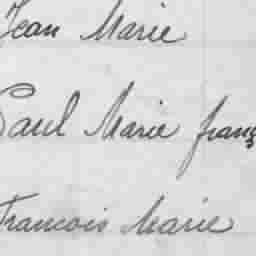 Jean Marie
Paul Marie franç
Francois Marie